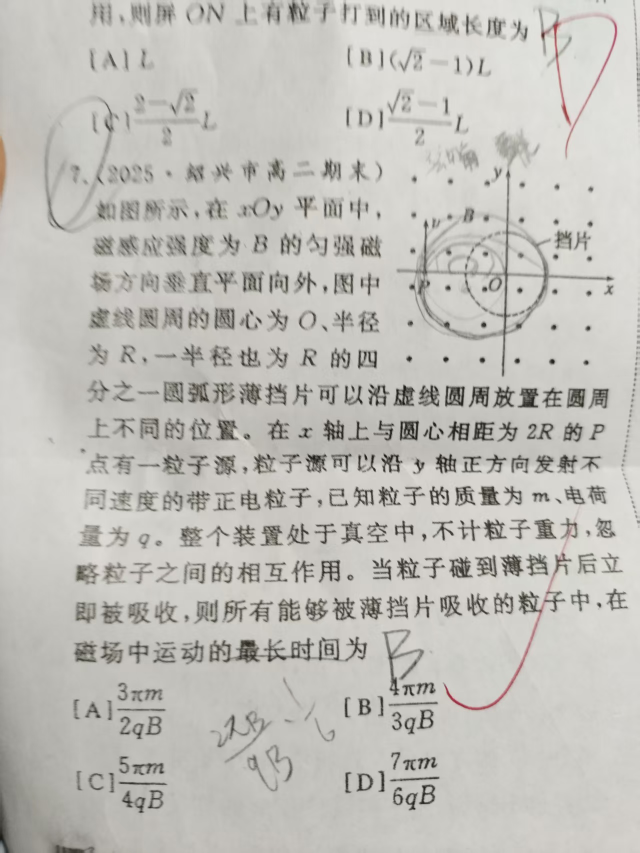 用,则屏 ON 上有粒子打到的区域长度为 B
[A] L [B] (√2－1)L
[C] (2－√2)/2 L [D] (√2－1)/2 L
7.(2025·绍兴市高二期末)
如图所示,在 xOy 平面中,
磁感应强度为 B 的匀强磁
场方向垂直平面向外,图中
虚线圆周的圆心为 O、半径
为 R,一半径也为 R 的四
y
v B
挡片
P O x
分之一圆弧形薄挡片可以沿虚线圆周放置在圆周
上不同的位置。在 x 轴上与圆心相距为 2R 的 P
点有一粒子源,粒子源可以沿 y 轴正方向发射不
同速度的带正电粒子,已知粒子的质量为 m、电荷
量为 q。整个装置处于真空中,不计粒子重力,忽
略粒子之间的相互作用。当粒子碰到薄挡片后立
即被吸收,则所有能够被薄挡片吸收的粒子中,在
磁场中运动的最长时间为 B
[A] 3πm/2qB [B] 4πm/3qB
[C] 5πm/4qB [D] 7πm/6qB